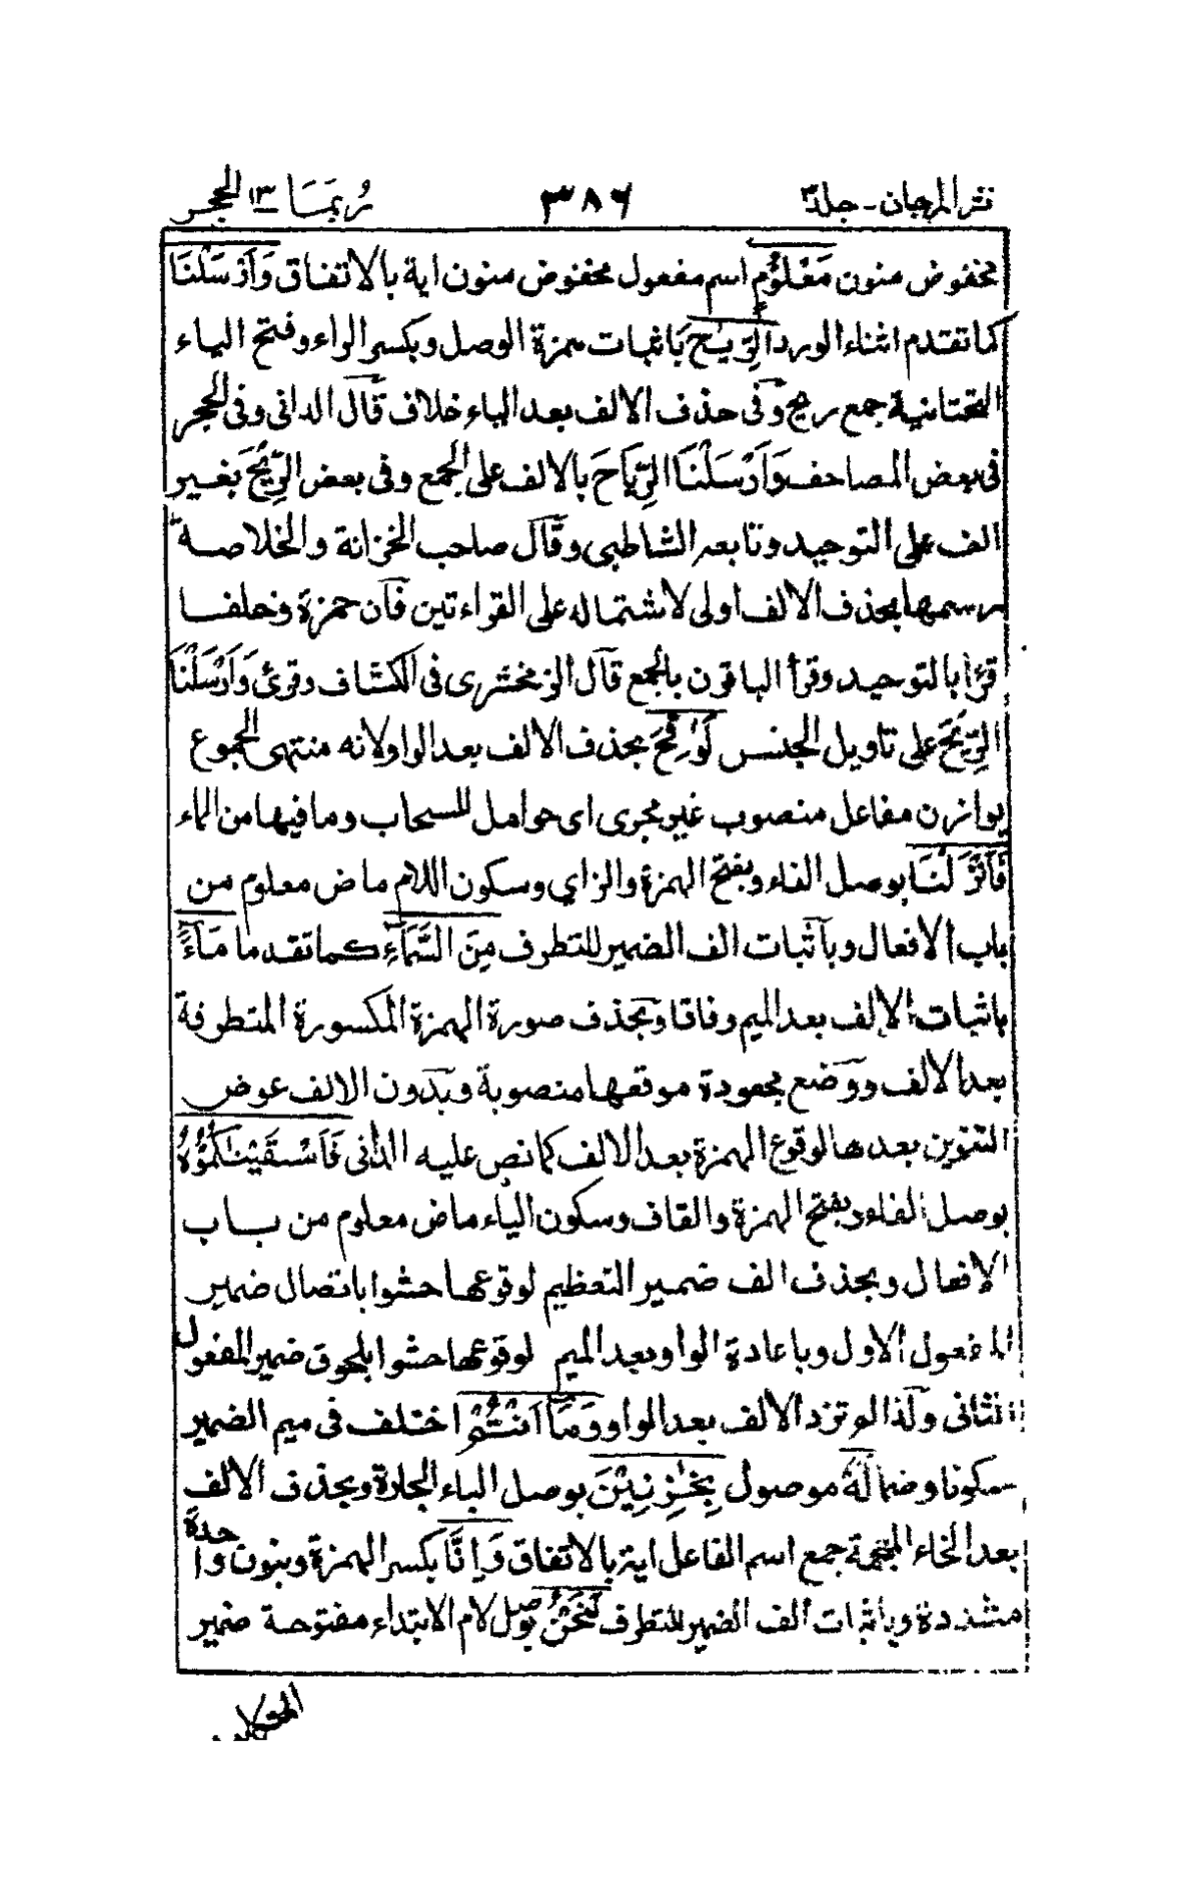 نثر المرجان - جلد ٣
٣٨٦
ربما ١٣ الحجر
مخفوض منون مَعْلُوْمٍ اسم مفعول مخفوض منون اية بالاتفاق وَاَرْسَلْنَا
كما تقدم اثناء الورد الرِّيٰحَ باثبات همزة الوصل وبكسر الراء وفتح الياء
التحتانية جمع ريح وفى حذف الالف بعد الياء خلاف قال الدانى وفى الحجر
فى بعض المصاحف وَاَرْسَلْنَا الرِّيَاحَ بالالف على الجمع وفى بعض الرِّيْحَ بغير
الف على التوحيد وتابعه الشاطبى وقال صاحب الخزانة والخلاصة
رسمها بحذف الالف اولى لاشتماله على القراءتين فان حمزة وخلفا
قرٔا بالتوحيد وقرأ الباقون بالجمع قال الزمخشرى فى الكشاف وقرئ وَاَرْسَلْنَا
الرِّيْحَ على تاويل الجنس لَوٰقِحَ بحذف الالف بعد الواو لانه منتهى الجموع
يوازن مفاعل منصوب غير مجرى اى حوامل للسحاب وما فيها من الماء
فَاَنْزَلْنَا بوصل الفاء وبفتح الهمزة والزاي وسكون اللام ماض معلوم من
باب الافعال وبآثبات الف الضمير للتطرف مِنَ السَّمَآءِ كما تقدم اما مَآءً
باثبات الالف بعد الميم وفاقا وبحذف صورة الهمزة المكسورة المتطرفة
بعد الالف ووضع مجعودة موقعها منصوبة وبدون الالف عوض
التنوين بعدها لوقوع الهمزة بعد الالف كما نص عليه الدانى فَاَسْقَيْنٰكُمُوْهُ
بوصل الفاء وبفتح الهمزة والقاف وسكون الياء ماض معلوم من باب
الافعال وبحذف الف ضمير التعظيم لوقوعها حشوا باتصال ضمير
المفعول الاول وباعادة الواو بعد الميم لوقوعها حشوا بلحوق ضمير المفعول
الثانى ولذا لم تزد الالف بعد الواو وَمَآ اَنْتُمْ اختلف فى ميم الضمير
سكونا وضما لَهٗ موصول بِخٰزِنِيْنَ بوصل الباء الجارة وبحذف الالف
بعد الخاء المعجمة جمع اسم الفاعل اية بالاتفاق وَاِنَّا بكسر الهمزة وبنون واحدة
مشددة وباثبات الف الضمير للتطرف لَنَحْنُ بوصل لام الابتداء مفتوحة ضمير